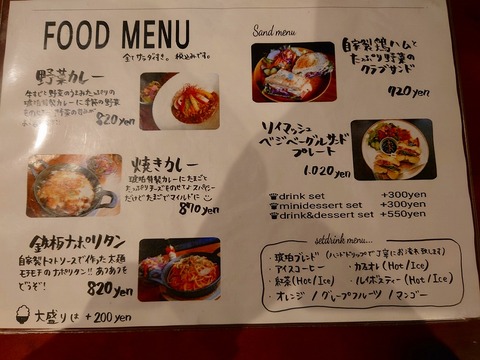 FOOD MENU
全てサラダつき。 税込みです。
野菜カレー
820yen
焼きカレー
琥珀特製カレーにたまごと
たっぷりチーズをのせてよ
だけどたまごでマイルドに
870yen
鉄板ナポリタン
自家製トマトソースで作った太麺
モチモチのナポリタン!! あつあつを
どうぞ!
820yen
大盛りは +200yen
Sand menu
自家製鶏ハムと
たっぷり野菜の
クラブサンド
920yen
ソイマッシュ
ベジベーグルサンド
プレート
1,020yen
drink set +300yen
minidessert set +300yen
drink&dessert set +550yen
setdrink menu...
・琥珀ブレンド (ハンドドリップで丁寧にお淹れ致します)
・アイスコーヒー ・カフェオレ(Hot/Ice)
・紅茶(Hot/Ice) ・ルイボスティー(Hot/Ice)
・オレンジ / グレープフルーツ / マンゴー